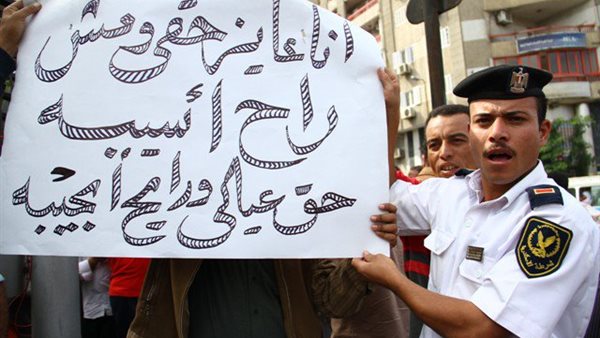 انا عايز حقى ومش
راح أسيبه
حق عيالى ورايح أجيبه